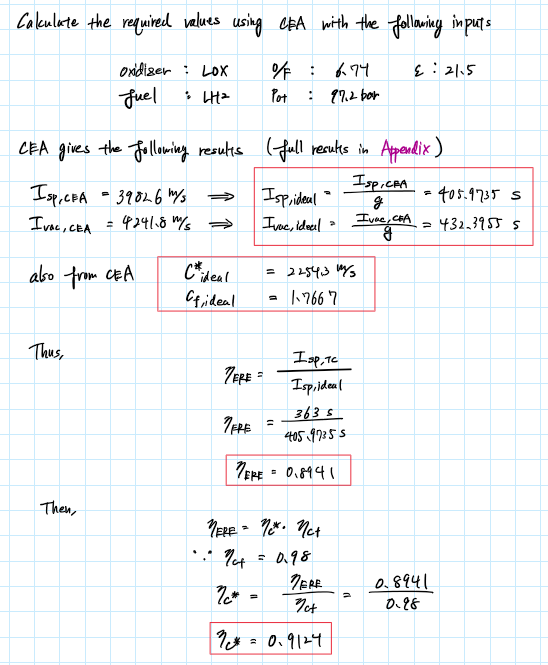 Calculate the required values using CEA with the following inputs
oxidiser : LOX O/F : 6.74 ε : 21.5
fuel : LH2 Pot : 97.2 bar
CEA gives the following results (full results in Appendix)
Isp,CEA = 3982.6 m/s ⇒ Isp,ideal = Isp,CEA / g = 405.9735 s
Ivac,CEA = 4241.8 m/s ⇒ Ivac,ideal = Ivac,CEA / g = 432.3955 s
also from CEA C*ideal = 2254.3 m/s
Cf,ideal = 1.7667
Thus,
ηERE = Isp,TC / Isp,ideal
ηERE = 363 s / 405.9735 s
ηERE = 0.8941
Then,
ηERE = ηc* · ηcf
∵ ηcf = 0.98
ηc* = ηERE / ηcf = 0.8941 / 0.98
ηc* = 0.9124